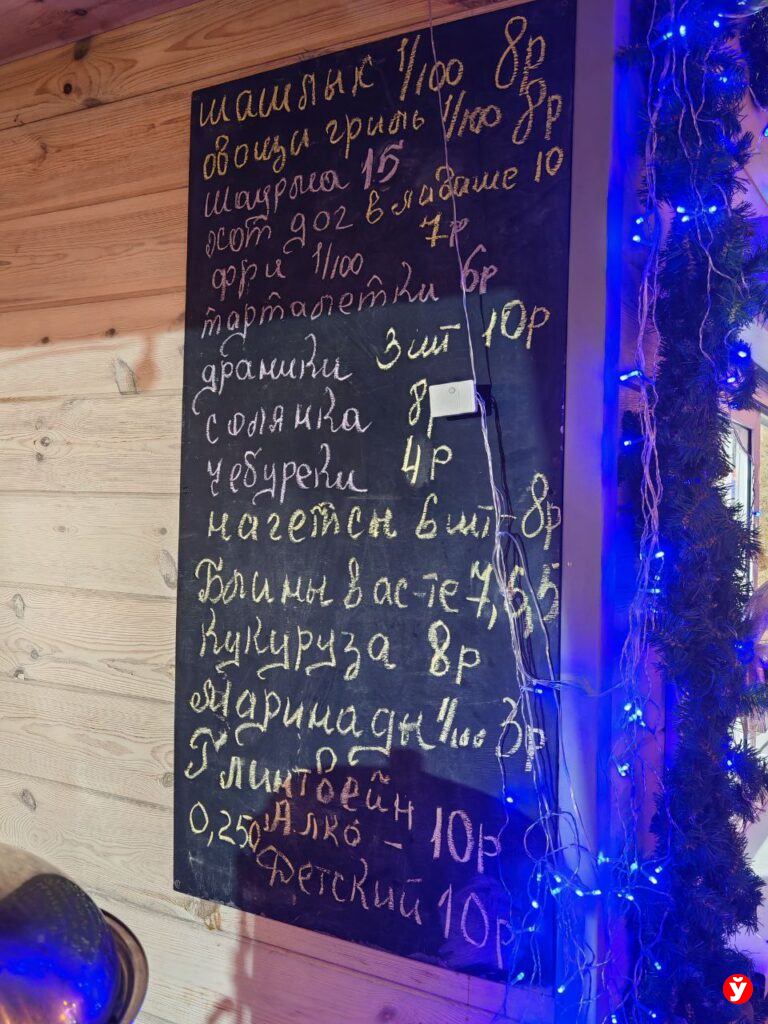 шашлык 1/100 8р
овощи гриль 1/100 8р
шаурма 15
хот дог в лаваше 10
фри 1/100 7р
тарталетки 6р
драники 3 шт 10р
солянка 8р
чебуреки 4р
нагетсы 6 шт - 8р
Блины в ас-те 7,6,5
Кукуруза 8р
Маринады 1/100 3р
Глинтвейн
0,250 Алко - 10р
Детский 10р
Ў